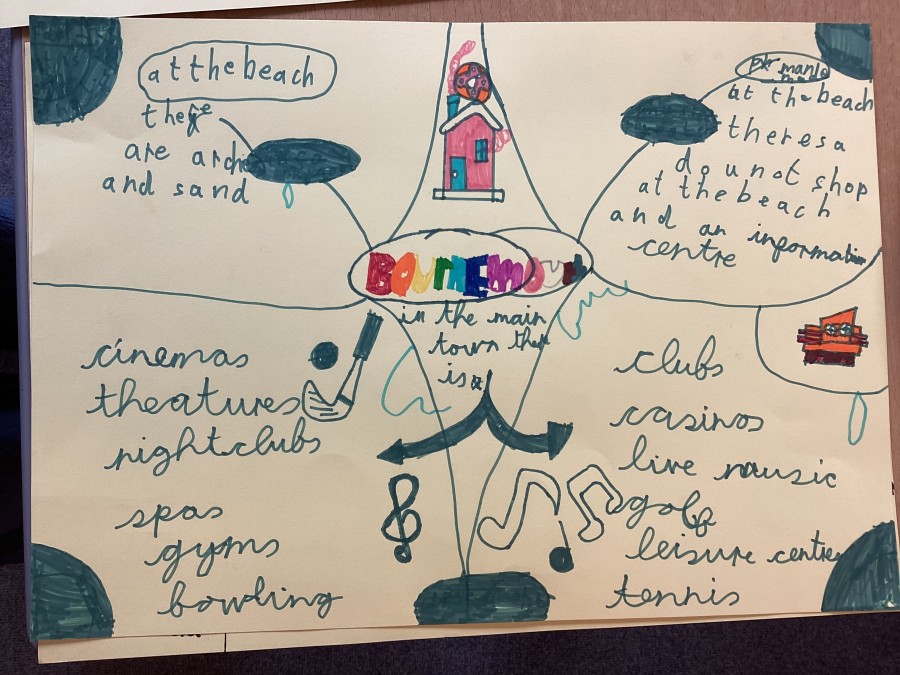 at the beach
there
are arch
and sand
at the beach
theres a
dounot shop
at the beach
and an information
centre
BOURNEMOUth
in the main
town ther
is
cinemas
theatures
nightclubs
spas
gyms
bowling
clubs
casinos
live mausic
golf
leisure centre
tennis